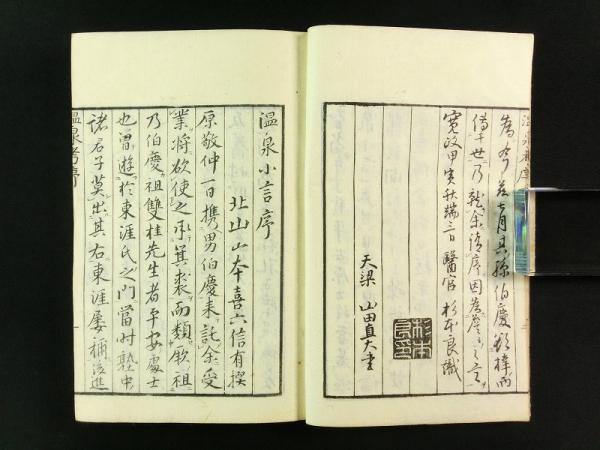 今茲七月其孫伯慶欲梓而
傳于世乃就余請序因為之言
寛政甲寅秋端三日醫官 杉本良識
天梁 山田直大書
杉本良印
温泉小言序
北山山本喜六信有撰
原敬仲一日携男伯慶来託余受
業将欲使之承箕裘而類厥祖
乃伯慶祖雙桂先生者平安處士
也曽遊於東涯氏之門當时塾中
諸君子莫出其右東涯屡稱後進
温泉考序